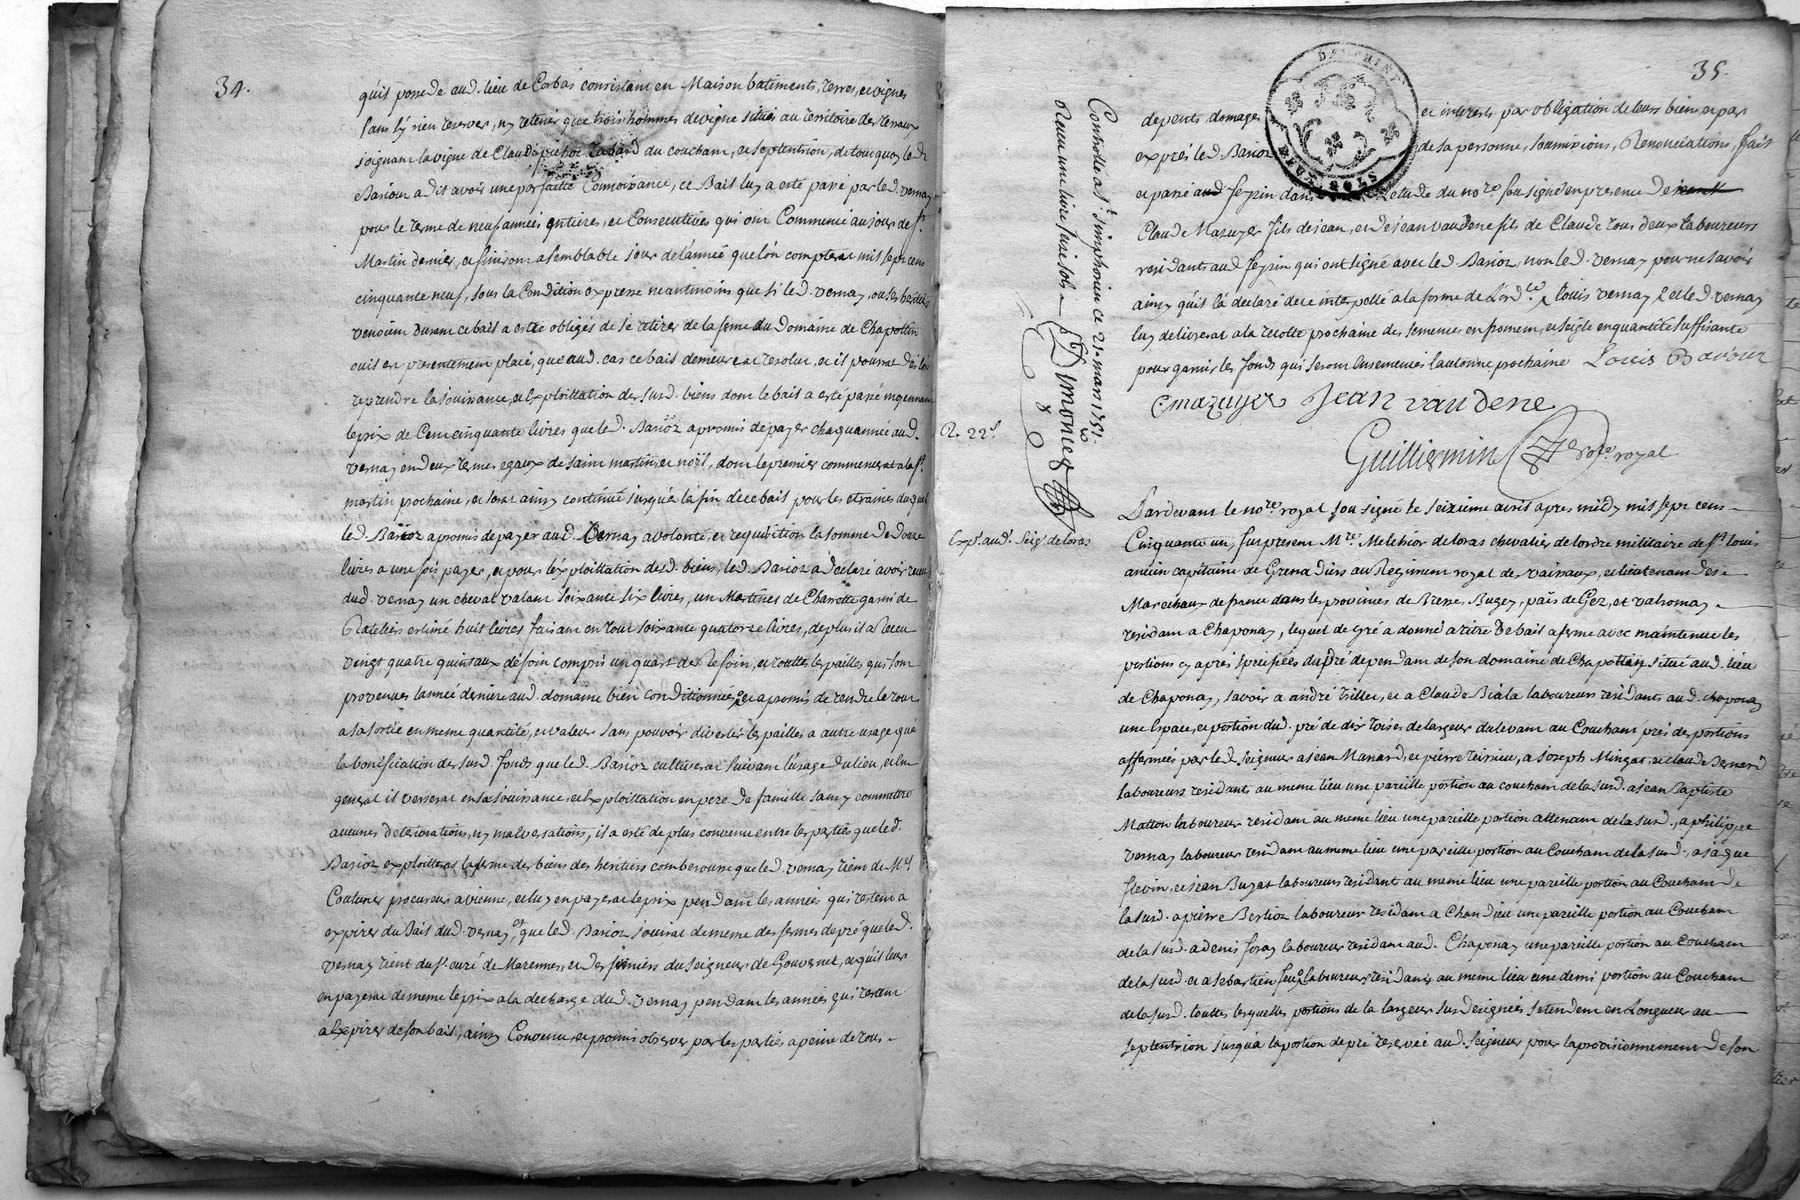 34.
qu'il possede aud. lieu de Corbas consistant en Maison batiments, terres, et vignes
sans s'y rien reserver, ny retenir que trois hommes de vigne situés au territoire des
joignant la vigne de Claude du couchant, et septentrion, de tout quoy led.
Barioz a dit avoir une parfaitte Connoissance, ce Bail luy a esté passé par led. vernay
pour le terme de neuf années entieres, et Consecutives qui ont Commencé au jour de st.
Martin dernier, et finiront a semblable jour de l'année que l'on compterat mil sept cens
cinquante neuf, sous la Condition expresse neantmoins que si led. vernay, ou ses heritiers
venoient durant ce bail a estre obligés de se retirer de la ferme du Domaine de Chapottin
ou il est presentement placé, que aud. cas ce bail demeurerat resolut, et il pourrat dès lors
reprendre la jouissance, et Exploittation desurd. biens dont le bail a esté passé moyennant
le prix de Cent cinquante livres que led. Barioz a promis de payer chaque année aud.
vernay en deux termes egaux de saint martin, et noël, dont le premier commencerat a la st.
martin prochaine, et serat ainsy continué jusqu'a la fin de ce bail pour les etraines duquel
led. Barioz a promis de payer aud. Vernay a volonté, et requisition la somme de Douze
livres a une fois payer, et pour l'exploittation desd. biens, led. Barioz a declaré avoir receu
dud. vernay un cheval valant soixante six livres, un de Charrette garni de
Rateliers estimé huit livres faisant en tout soixante quatorze livres, de plus il a receu
vingt quatre quintaux de foin compris un quart de Refoin, et touttes les pailles qui sont
provenues l'année derniere aud. domaine bien conditionnées, et a promis de rendre le tout
a sa sortie en meme quantité, et valeur sans pouvoir divertir les pailles a autre usage qu'a
la bonification des surd. fonds que led. Barioz cultiverat suivant l'usage du lieu, et en
general il verserat en sa jouissance, et Exploittation en pere de famille sans y commettre
aucunes deteriorations, ny malversations, il a esté de plus convenu entre les parties que led.
Barioz exploitteras la ferme des biens des heritiers comberousse que led. vernay tient de Mr.
Couturier procureur a vienne, et luy en payerat le prix pendant les années qui restent a
expirer du Bail dud. vernay, et que led. Barioz jouirat de meme des fermes de pré que led.
vernay tient du sr. curé de Marennes, et des fermiers du seigneur de Gouvernet, et qu'il leur
en payerat de meme le prix a la decharge dud. vernay pendant les années qui restent
a Expirer de son bail, ainsy Convenu, et promis observer par les parties a peine de tous
35.
DAUPHINE
depents domages et interests par obligation de leurs biens, et par
exprés led. Barioz de sa personne, soumissions, Renonciations, fait
et passé aud. feyzin dans etude du nore. sousigné en presence de
Claude Mazuyer fils de jean, et de jean vaudene fils de Claude tous deux Laboureurs
residants aud. feyzin qui ont signé avec led. Barioz, non led. vernay pour ne savoir
ainsy qu'il l'a declaré de ce interpellé a la forme de L'ordce. Louis vernay et led. vernay
luy delivrerat a la recolte prochaine des semences en froment, et seigle en quantité suffisante
pour garnir les fonds qui seront Ensemencés l'autonne prochaine Louis Bariouz
C mazuyer Jean vaudene
Guilliermin nore. royal
Controllé a St. Simphorien ce 21. mars 1751.
Receu une livre seize sols
R. 22s.
Exp. aud. seigr. de loras
Pardevant le nore. royal sousigné le seizieme avril apres midy mil sept cens
Cinquante un, fut present Mre. Melchior de loras chevalier de l'ordre militaire de st. louis
ancien capitaine de Grenadiers au Regiment royal des vaisseaux, et lieutenant des
Marechaux de france dans les provinces de Bresse, Bugey, païs de Gez, et valromay
residant a Chaponay, lequel de gré a donné a titre de bail a ferme avec maintenue les
portions cy aprés specifiées du pré dependant de son domaine de Chapottin situé aud. lieu
de Chaponay, savoir a andré trillet, et a Claude Biala laboureurs residants aud. chaponay
une Espace, et portion dud. pré de dix toises de largeur du levant au Couchant prés des portions
affermées par led. seigneur a jean Manard, et pierre teissieu, a joseph Mingat, et claude Bernard
laboureurs residants au meme lieu une pareille portion au couchant de la surd. a jean Baptiste
Matton laboureur residant au meme lieu une pareille portion attenant de la surd., a philippe
vernay laboureur residant au meme lieu une pareille portion au Couchant de la surd., a jaque
flevin, et jean Buzat laboureurs residants au meme lieu une pareille portion au Couchant de
la surd. a pierre Berlioz laboureur residant a Chandieu une pareille portion au Couchant
de la surd. a denis foray laboureur residant aud. Chaponay une pareille portion au Couchant
de la surd. et a sebastien laboureur residant au meme lieu une demi portion au Couchant
de la surd. touttes lesquelles portions de la largeur sus designées s'etendent en Longueur au
septentrion jusqu'a la portion de pré reservée aud. seigneur pour la provisionnement de son